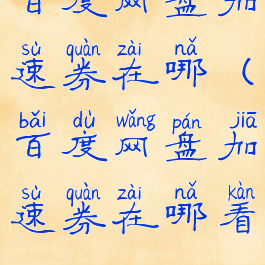 百度网盘加
sù quàn zài nǎ
速券在哪（
bǎi dù wǎng pán jiā
百度网盘加
sù quàn zài nǎ kàn
速券在哪看